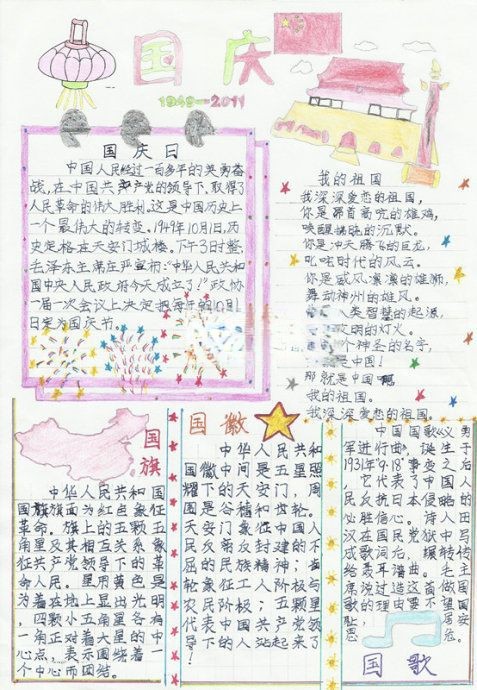 国庆
1949—2011
国庆日
中国人民经过一百多年的英勇奋
战,在中国共产党的领导下,取得了
人民革命的伟大胜利。这是中国历史上
一个最伟大的转变。1949年10月1日,历
史定格在天安门城楼。下午3时整,
毛泽东主席庄严宣布:“中华人民共和
国中央人民政府今天成立了!”政协
一届一次会议上决定把每年的10月1
日定为国庆节
我的祖国
我深深爱恋的祖国,
你是昂首高吭的雄鸡,
唤醒拂晓的沉默。
你是冲天腾飞的巨龙,
叱咤时代的风云。
你是威风凛凛的雄狮,
舞动神州的雄风。
人类智慧的起源,
明的灯火。
个神圣的名字,
是中国!
那就是中国啊
我的祖国。
我深深爱恋的祖国。
国旗
中华人民共和国
国旗旗面为红色象征
革命。旗上的五颗五
角星及其相互关系象
征共产党领导下的革
命人民。星用黄色是
为着在地上显出光明
,四颗小五角星各有
一角正对着大星的中
心点,表示围绕着一
个中心而团结。
国徽
中华人民共和
国徽中间是五星照
耀下的天安门,周
围是谷穗和齿轮。
天安门象征中国人
民反帝反封建的不
屈的民族精神;齿
轮象征工人阶级与
农民阶级;五颗星
代表中国共产党领
导下的人站起来了
!
中国国歌《义勇
军进行曲》诞生于
1931年“9·18”事变之后
,它代表了中国人
民反抗日本侵略的
必胜信心。诗人田
汉在国民党狱中写
成歌词光,辗转传
给聂耳谱曲。毛主
席说过造这首做国
歌的理由要不望国
国歌